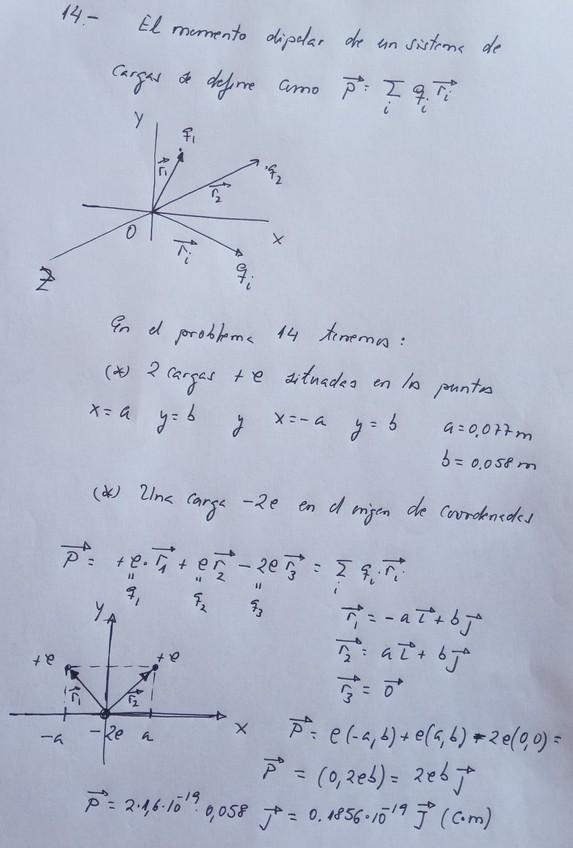 14.- El momento dipolar de un sistema de
cargas se define como P⃗ = Σᵢ qᵢ r⃗ᵢ
Y
q₁
r⃗₁
q₂
r⃗₂
O
X
r⃗ᵢ
qᵢ
Z
En el problema 14 tenemos:
(*) 2 cargas +e situadas en los puntos
x=a y=b y x=-a y=b a=0,077 m
b=0.058 m
(*) Una carga -2e en el origen de coordenadas
P⃗ = +e·r⃗₁ + e r⃗₂ - 2e r⃗₃ = Σᵢ qᵢ·r⃗ᵢ
q₁ q₂ q₃
r⃗₁ = -a i⃗ + b j⃗
r⃗₂ = a i⃗ + b j⃗
r⃗₃ = 0⃗
Y
+e +e
r⃗₁ r⃗₂
-a -2e a X
P⃗ = e(-a,b) + e(a,b) - 2e(0,0) =
P⃗ = (0,2eb) = 2eb j⃗
P⃗ = 2·1,6·10⁻¹⁹·0,058 j⃗ = 0.1856·10⁻¹⁹ j⃗ (C·m)